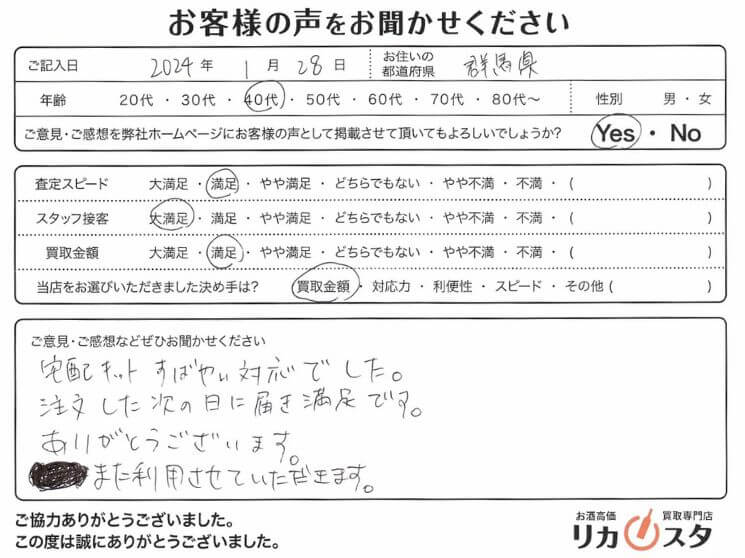 お客様の声をお聞かせください
ご記入日 2024 年 1 月 28 日 お住いの都道府県 群馬県
年齢 20代 ・ 30代 ・ 40代 ・ 50代 ・ 60代 ・ 70代 ・ 80代〜 性別 男 ・ 女
ご意見・ご感想を弊社ホームページにお客様の声として掲載させて頂いてもよろしいでしょうか? Yes ・ No
査定スピード 大満足 ・ 満足 ・ やや満足 ・ どちらでもない ・ やや不満 ・ 不満 ・ ( )
スタッフ接客 大満足 ・ 満足 ・ やや満足 ・ どちらでもない ・ やや不満 ・ 不満 ・ ( )
買取金額 大満足 ・ 満足 ・ やや満足 ・ どちらでもない ・ やや不満 ・ 不満 ・ ( )
当店をお選びいただきました決め手は? 買取金額 ・ 対応力 ・ 利便性 ・ スピード ・ その他 ( )
ご意見・ご感想などぜひお聞かせください
宅配キット すばやい対応でした。
注文した次の日に届き満足です。
ありがとうございます。
また利用させていただきます。
ご協力ありがとうございました。
この度は誠にありがとうございました。
お酒高価 買取専門店
リカスタ